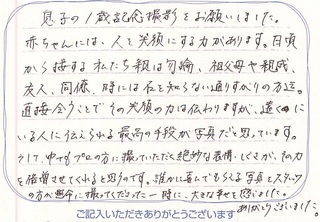 息子の1歳記念撮影をお願いしました。
赤ちゃんには、人を笑顔にする力があります。日頃
から接する私たち親は勿論、祖父母や親戚、
友人、同僚、時には名も知らない通りすがりの方迄。
直接会うことでその笑顔の力は伝わりますが、遠くに
いる人に伝えられる最高の手段が写真だと思っています。
そして、中でもプロの方に撮っていただく絶妙な表情・しぐさが、その力
を倍増させてくれると思うのです。誰かに喜んでもらえる写真をスタッフ
の方が懸命に撮ってくださった一時に、大きな幸せを感じました。
ありがとうございました。
ご記入いただきありがとうございます